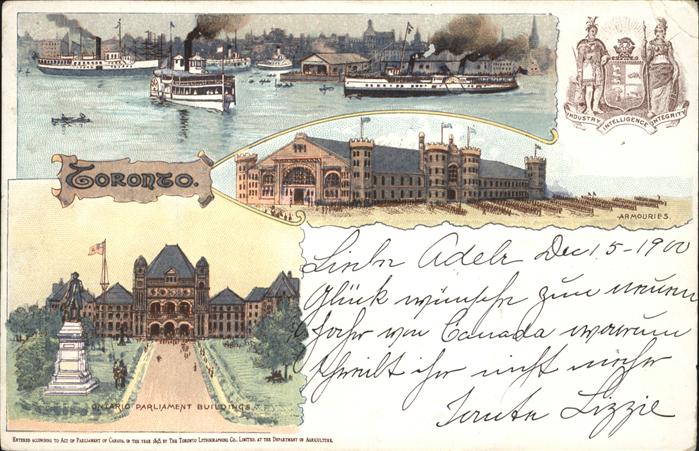 INDUSTRY INTELLIGENCE INTEGRITY
TORONTO.
ARMOURIES.
Liebe Adele Dec 15-1900
Glück wünsche zum neuen
Jahr von Canada warum
schreibt ihr nicht mehr
Tante Lizzie
ONTARIO PARLIAMENT BUILDINGS.
ENTERED ACCORDING TO ACT OF PARLIAMENT OF CANADA, IN THE YEAR 1898, BY THE TORONTO LITHOGRAPHING CO., LIMITED, AT THE DEPARTMENT OF AGRICULTURE.